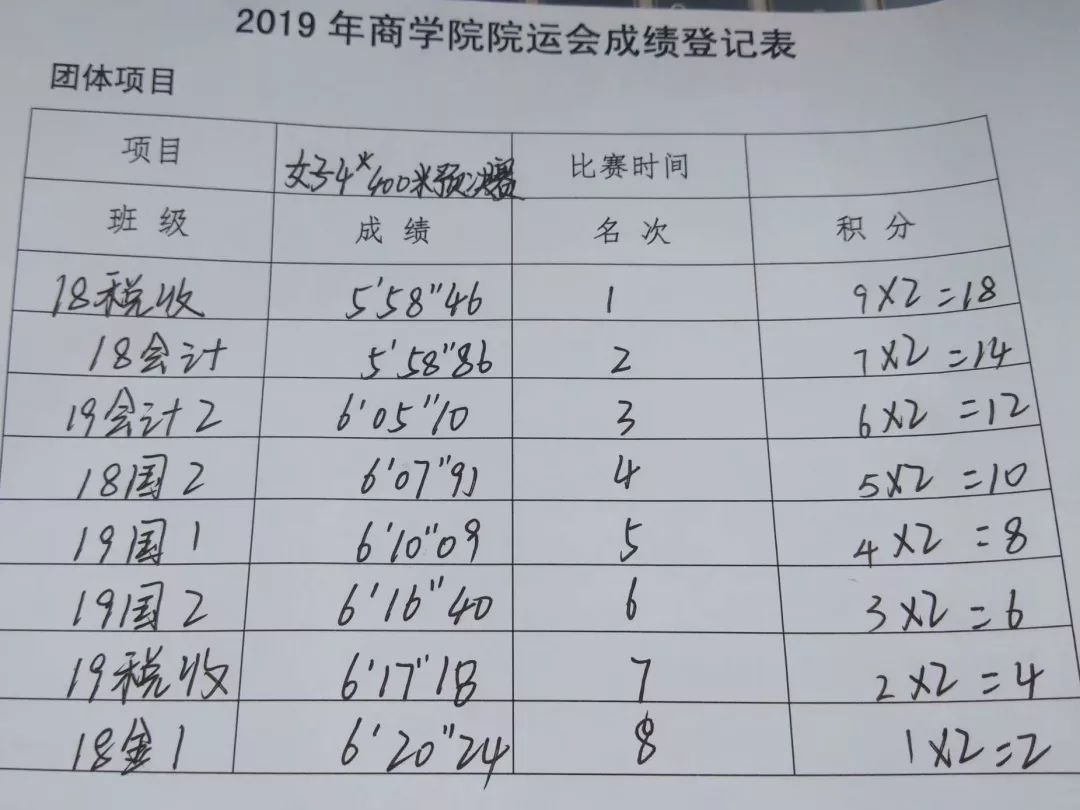 2019年商学院院运会成绩登记表
团体项目
项目 女子4*400米预决赛 比赛时间
班级 成绩 名次 积分
18税收 5'58"46 1 9×2=18
18会计 5'58"86 2 7×2=14
19会计2 6'05"10 3 6×2=12
18国2 6'07"91 4 5×2=10
19国1 6'10"09 5 4×2=8
19国2 6'16"40 6 3×2=6
19税收 6'17"18 7 2×2=4
18金1 6'20"24 8 1×2=2